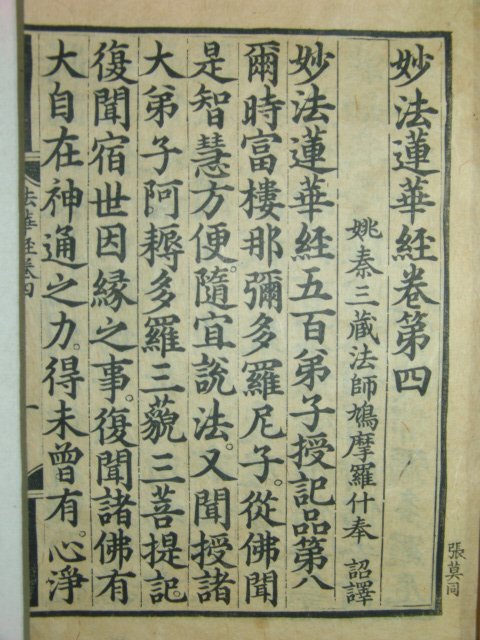 妙法蓮華經卷第四
姚秦三藏法師鳩摩羅什奉 詔譯
妙法蓮華經五百弟子授記品第八
爾時富樓那彌多羅尼子。從佛聞
是智慧方便。隨宜說法。又聞授諸
大弟子阿耨多羅三藐三菩提記。
復聞宿世因緣之事。復聞諸佛有
大自在神通之力。得未曾有。心淨
法華經卷四
一
張莫同